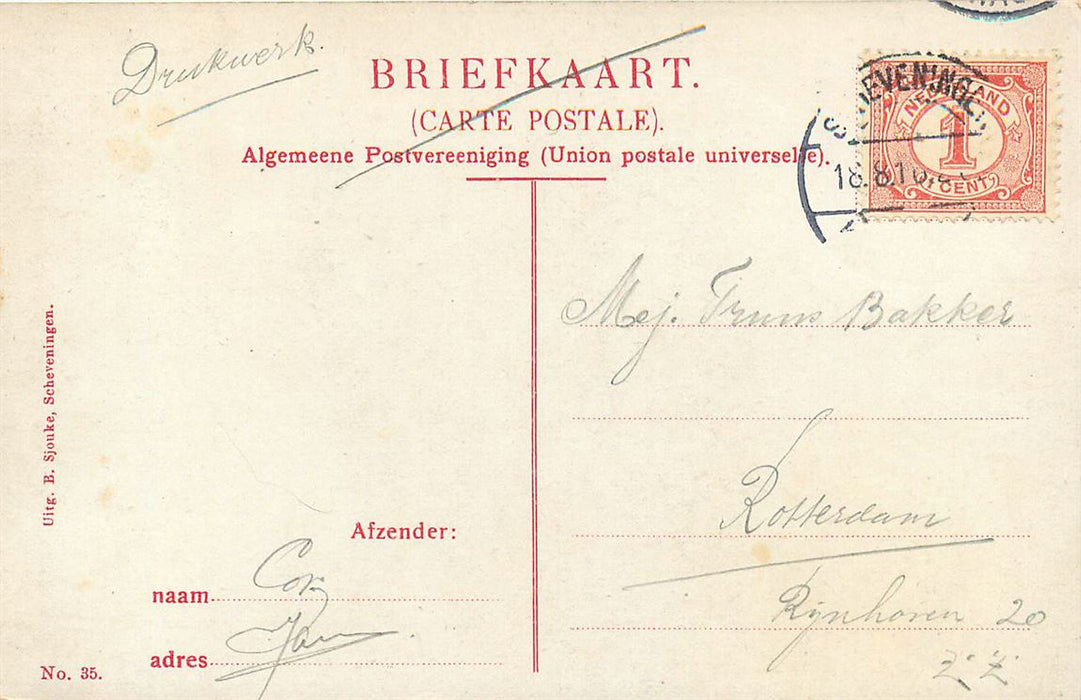 Drukwerk.
BRIEFKAART.
(CARTE POSTALE).
Algemeene Postvereeniging (Union postale universelle).
SCHEVENINGEN
18.8.10
NEDERLAND
1
CENT
Mej. Truus Bakker
Rotterdam
Rijnhaven 20
Z.Z.
Afzender:
naam
Cor
adres
Uitg. B. Sjouke, Scheveningen.
No. 35.